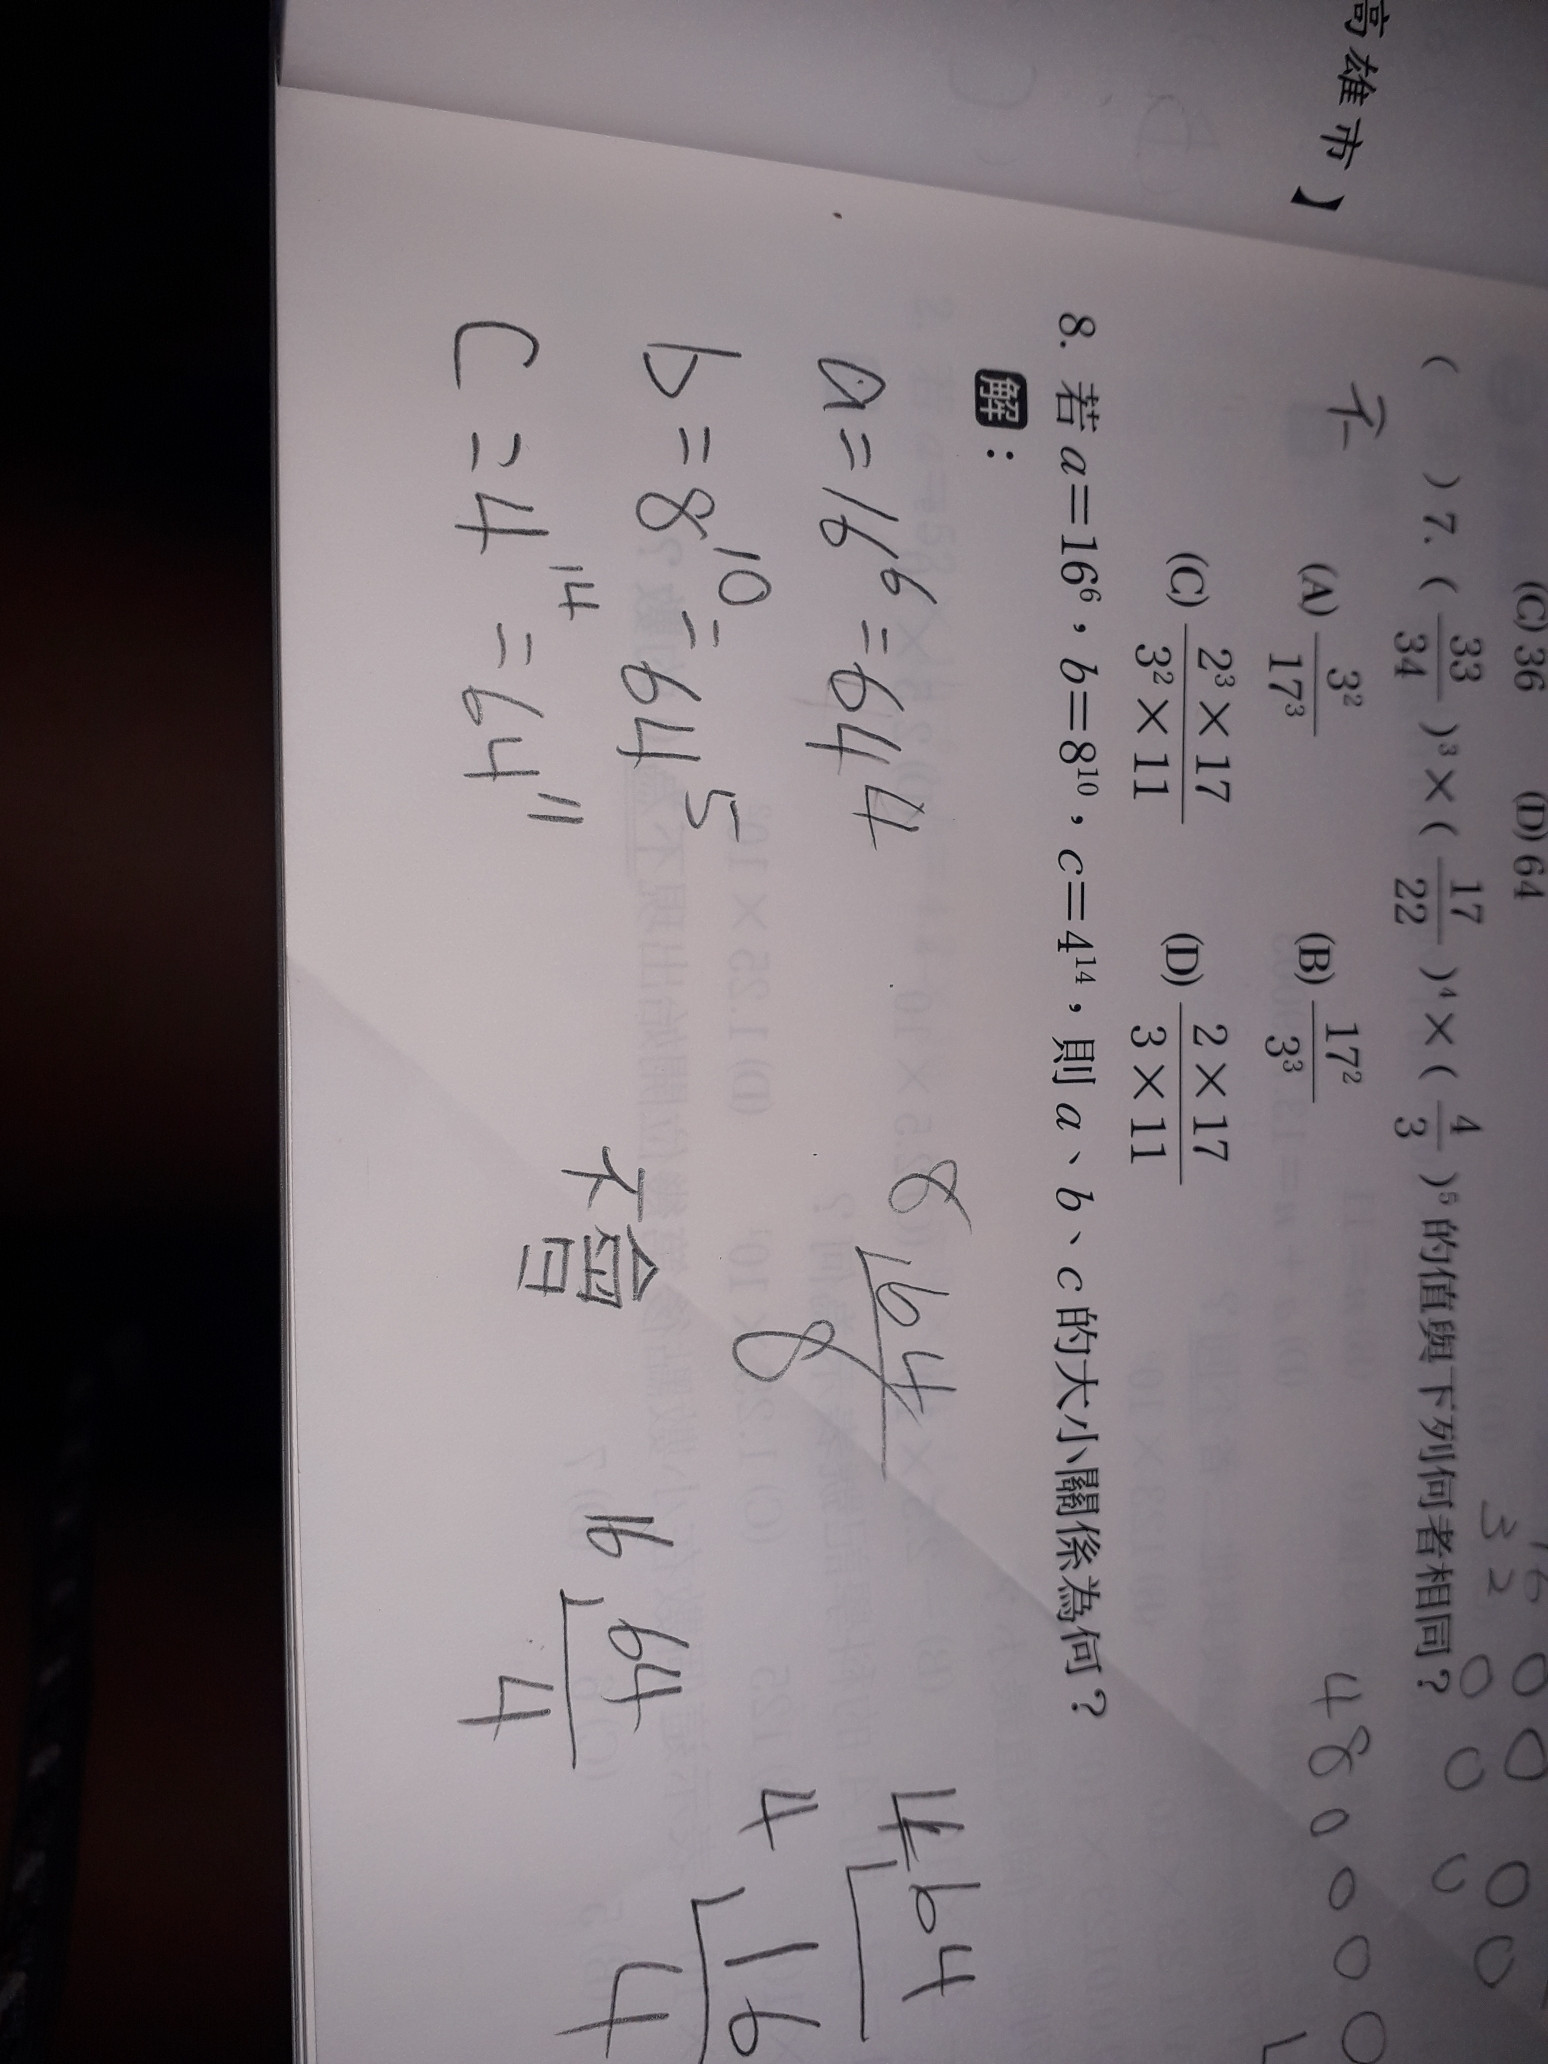 高雄市】
(C) 36 (D) 64
( ) 7. ( 33/34 )³×( 17/22 )⁴×( 4/3 )⁵的值與下列何者相同？
(A) 3²/17³ (B) 17²/3³
(C) 2³×17/3²×11 (D) 2×17/3×11
8. 若 a=16⁶，b=8¹⁰，c=4¹⁴，則 a、b、c 的大小關係為何？
解：
a=16⁶=64⁴
b=8¹⁰=64⁵
c=4¹⁴=64¹¹
不會
8 64
8
16 64
4
4 64
4 16
4
3 2 0 0 0
4 8 0 0 0 0